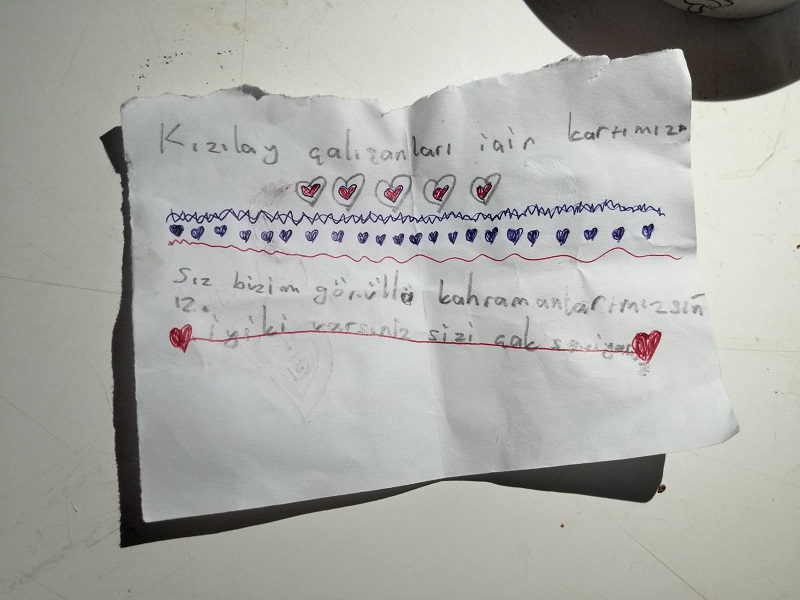 Kızılay çalışanları için kartımız
Siz bizim görüllü kahramanlarımızsın
ız.
iyiki varsınız sizi çok seviyoruz